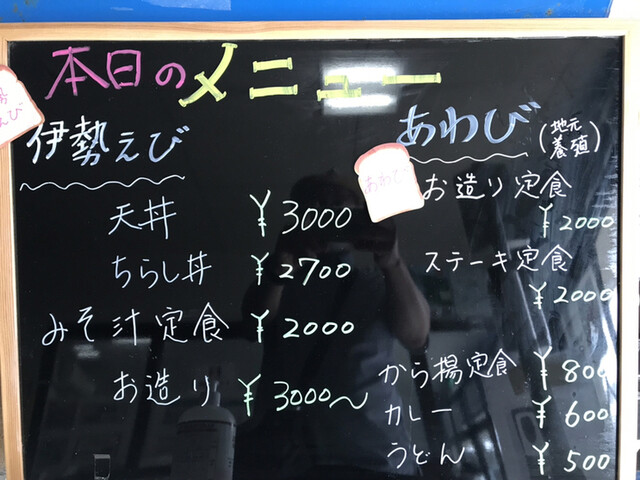 本日のメニュー
伊勢えび
天丼 ¥3000
ちらし丼 ¥2700
みそ汁定食 ¥2000
お造り ¥3000～
あわび(地元養殖)
あわび
お造り定食
¥2000
ステーキ定食
¥2000
から揚定食 ¥800
カレー ¥600
うどん ¥500